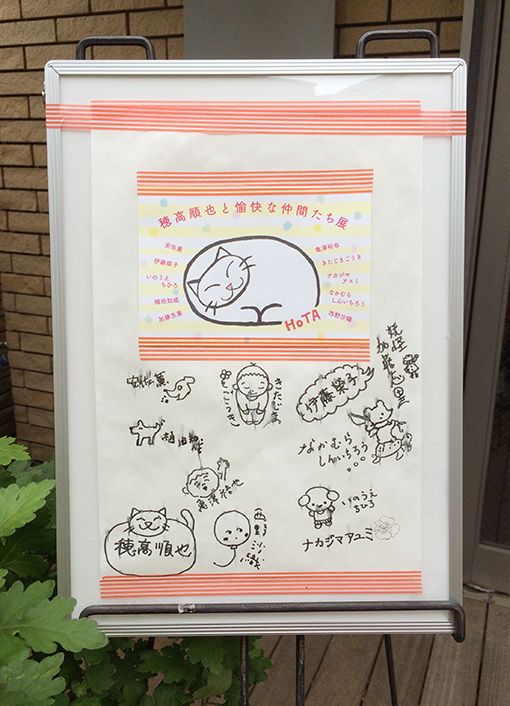 穂高順也と愉快な仲間たち展
安佐薫
伊藤榮子
いのうえ
ちひろ
植田知成
加藤志異
亀澤裕也
きたじまごうき
ナカジマ
アユミ
なかむら
しんいちろう
西野沙織
HoTA
きたじま
ごうき
伊藤榮子
妖怪
加藤志異
なかむら
しんいちろう
亀澤裕也
いのうえ
ちひろ
穂高順也
ナカジマアユミ